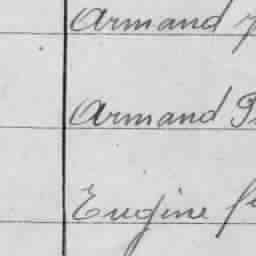 Armand
Armand
Eugine